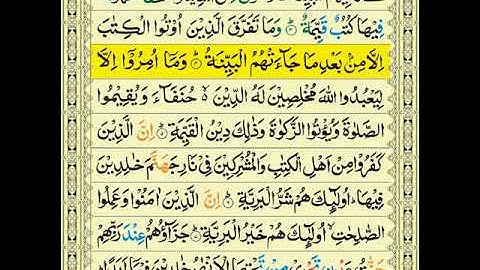 فِيْهَا كُتُبٌ قَيِّمَةٌ ؕ وَمَا تَفَرَّقَ الَّذِيْنَ اُوْتُوا الْكِتٰبَ
اِلَّا مِنْۢ بَعْدِ مَا جَآءَتْهُمُ الْبَيِّنَةُ ؕ وَمَاۤ اُمِرُوْۤا اِلَّا
لِيَعْبُدُوا اللّٰهَ مُخْلِصِيْنَ لَهُ الدِّيْنَ ۙ حُنَفَآءَ وَيُقِيْمُوا
الصَّلٰوةَ وَيُؤْتُوا الزَّكٰوةَ وَذٰلِكَ دِيْنُ الْقَيِّمَةِ ؕ اِنَّ الَّذِيْنَ
كَفَرُوْا مِنْ اَهْلِ الْكِتٰبِ وَالْمُشْرِكِيْنَ فِيْ نَارِ جَهَنَّمَ خٰلِدِيْنَ
فِيْهَا ؕ اُولٰٓئِكَ هُمْ شَرُّ الْبَرِيَّةِ ؕ اِنَّ الَّذِيْنَ اٰمَنُوْا وَعَمِلُوا
الصّٰلِحٰتِ ۙ اُولٰٓئِكَ هُمْ خَيْرُ الْبَرِيَّةِ ؕ جَزَآؤُهُمْ عِنْدَ رَبِّهِمْ